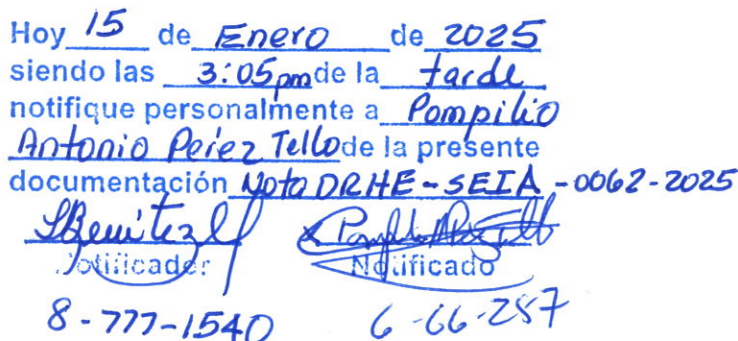 Hoy 15 de Enero de 2025
siendo las 3:05 pm de la tarde
notifique personalmente a Pompilio
Antonio Perez Tello de la presente
documentación Nota DRHE-SEIA-0062-2025
Notificador Notificado
8-777-1540 6-66-287